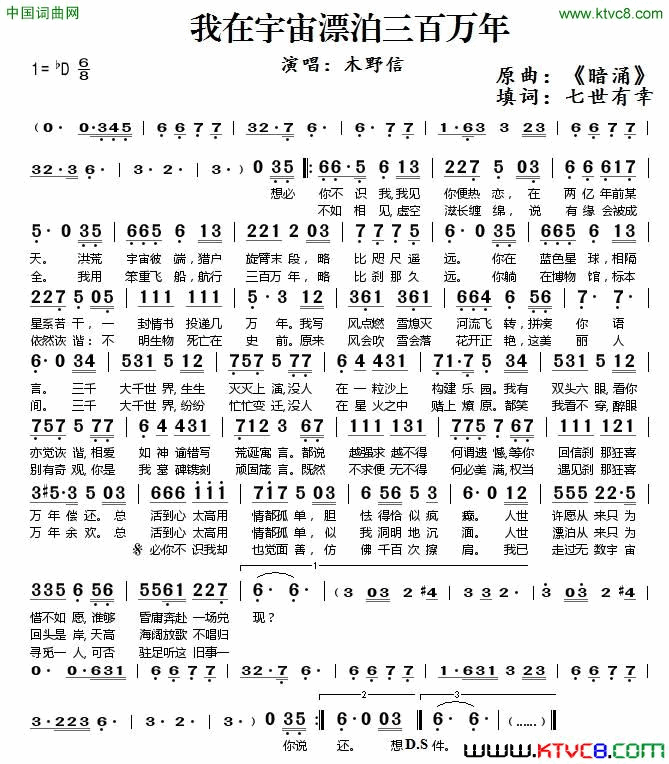 中国词曲网
www.ktvc8.com
我在宇宙漂泊三百万年
演唱：木野信
1=♭D 6/8
原曲：《暗涌》
填词：七世有幸
(0· 0·345 | 6 6 7 7 | 32·7 6· | 6· 7· | 1·63 3 23 | 6 6 7 7 |
32·3 6· | 3·2· | 3·) 0 35 |: 66·5 6 13 | 227 5 03 | 6 6 617 |
想必 你不 识 我,我见 你便热 恋，在 两 亿 年前某
不如 相 见,虚空 滋长缠 绵，说 有 缘 会被成
5· 0 35 | 665 6 13 | 221 2 03 | 7 7 5 | 5· 0 35 | 665 6 13 |
天。 洪荒 宇宙彼 端,猎户 旋臂末 段，略 比 咫尺 遥 远。 你在 蓝色星 球,相隔
全。 我用 笨重飞 船,航行 三百万 年，略 比 刹 那 久 远。 你躺 在博物 馆,标本
227 5 05 | 111 111 | 5· 3 32 | 361 361 | 664 6 56 | 7· 7· |
星系若 干，一 封情书 投递几 万 年。我写 风点燃 雪熄灭 河流飞 转，拼凑 你 语
依然诙 谐：不 明生物 死亡在 史 前。原来 风会吹 雪会落 花开正 艳，这美 丽 人
6· 0 34 | 531 5 12 | 757 5 77 | 6 4 431 | 712 6 34 | 531 5 12 |
言。 三千 大千世 界,生生 灭灭上 演,没人 在 一 粒沙上 构建乐 园。我有 双头六 眼,看你
间。 三千 大千世 界,纷纷 忙忙变 迁,没人 在 星 火之中 赌上 燎 原。都笑 我看不 穿,醉眼
757 5 77 | 6 4 431 | 712 3 67 | 131 131 | 712 3 67 | 131 131 |
亦觉诙 谐,相爱 如 神 谕惜写 荒诞寓 言。都说 越强求 越不得 何谓遗 憾,等你 回信刹 那狂喜
别有奇 观,你是 我 墓 碑镌刻 顽固箴 言。既然 不求便 无不得 何必美 满,权当 遇见刹 那狂喜
3#5·3 5 03 | 666 iii | 7i7 5 03 | 6 56 56 | 6· 0 12 | 555 22·5 |
万 年 偿 还。总 活到心 太高用 情都孤 单，胆 怯 得恰 似疯 癫。 人世 许愿从 来只为
万 年 余 欢。总 活到心 太高用 情都孤 单，似 我 洞明 地沉 湎。 人世 漂泊从 来只为
必你不 识我却 也觉面 善，仿 佛 千百 次擦 肩。 我已 走过无 数宇宙
335 6 56 | 5561 227 | 6· 6· | (3 03 03 2 #4 | 3 03 03 2 #4 |
惜不如 愿,谁够 昏庸奔赴 一场兑 现？
回头是 岸,天高 海阔放歌 不唱归
寻觅一 人,可否 驻足听这 旧事一
0· 0·631 | 6 6 7 7 | 32·7 6· | 6· 7· | 1·631 3 23 | 6 6 7 7 |
3·223 6· | 3·2· | 3·) 0 35 :| 6· 0 03 | 6· 6· | (……) |
你说 还。 想 D.S 件。
WWW.KTVC8.COM